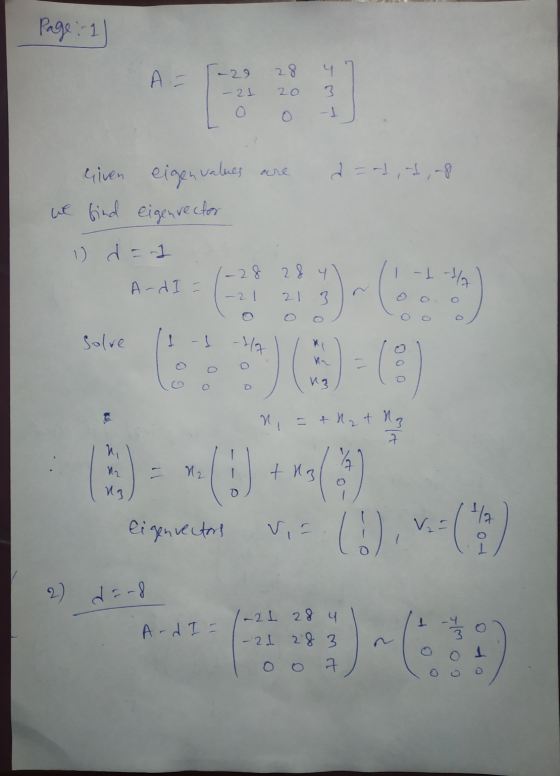 Page:-1
A = [ -29 28 4
-21 20 3
0 0 -1 ]
Given eigenvalues are λ = -1, -1, -8
we find eigenvector
1) λ = -1
A-λI = ( -28 28 4 ) ~ ( 1 -1 -1/7 )
( -21 21 3 ) ( 0 0 0 )
( 0 0 0 ) ( 0 0 0 )
Solve ( 1 -1 -1/7 ) ( x1 ) = ( 0 )
( 0 0 0 ) ( x2 ) ( 0 )
( 0 0 0 ) ( x3 ) ( 0 )
x1 = + x2 + x3/7
∴ ( x1 ) = x2 ( 1 ) + x3 ( 1/7 )
( x2 ) ( 1 ) ( 0 )
( x3 ) ( 0 ) ( 1 )
Eigenvectors V1 = ( 1 ) , V2 = ( 1/7 )
( 1 ) ( 0 )
( 0 ) ( 1 )
2) λ = -8
A-λI = ( -21 28 4 ) ~ ( 1 -4/3 0 )
( -21 28 3 ) ( 0 0 1 )
( 0 0 7 ) ( 0 0 0 )